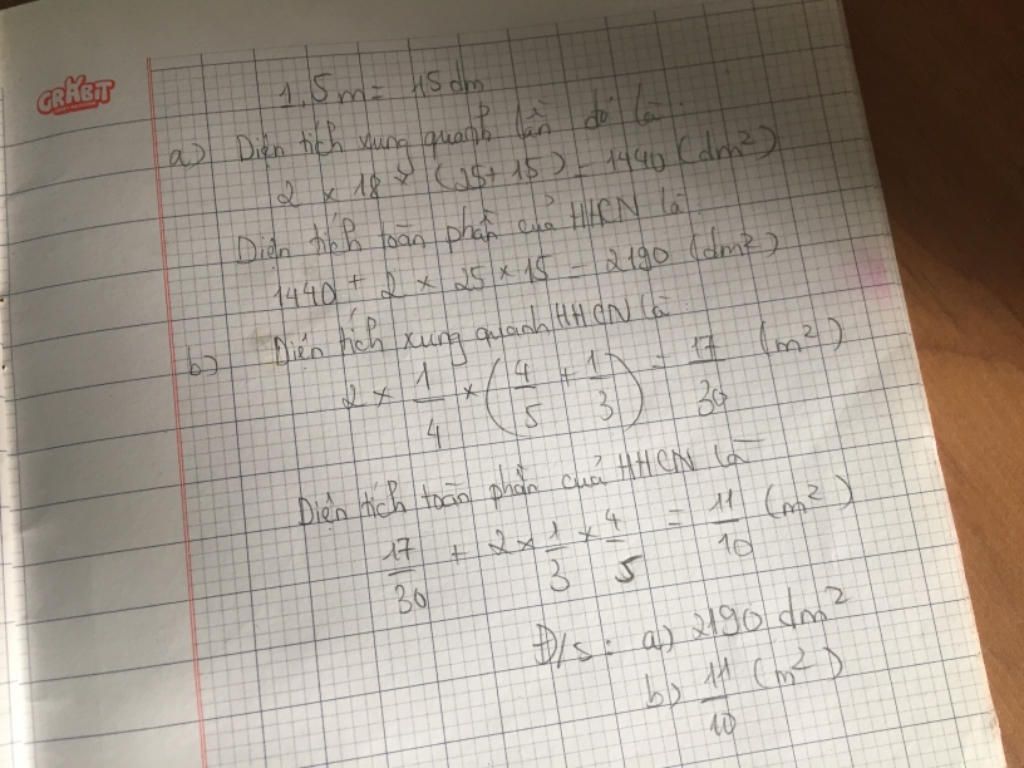 GRABIT
1,5m = 15 dm
a) Diện tích xung quanh lần đó là
2 × 18 × (25+15) = 1440 (dm²)
Diện tích toàn phần của HHCN là
1440 + 2 × 25 × 15 = 2190 (dm²)
b) Diện tích xung quanh HHCN là
2 × 1/4 × (4/5 + 1/3) = 17/30 (m²)
Diện tích toàn phần của HHCN là
17/30 + 2 × 1/3 × 4/5 = 11/10 (m²)
Đ/s: a) 2190 dm²
b) 11/10 (m²)